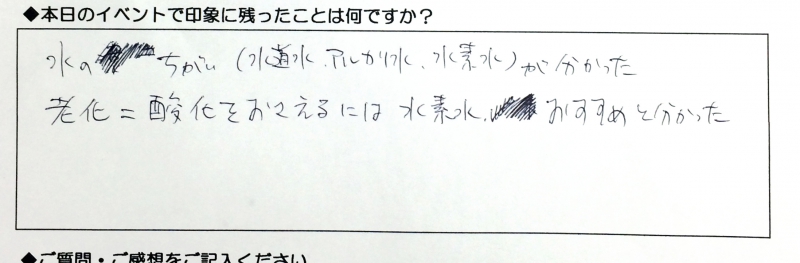 ◆本日のイベントで印象に残ったことは何ですか？
水の ちがい (水道水、アルカリ水、水素水)が分かった
老化=酸化をおさえるには水素水、おすすめと分かった
◆ご質問・ご感想をご記入ください